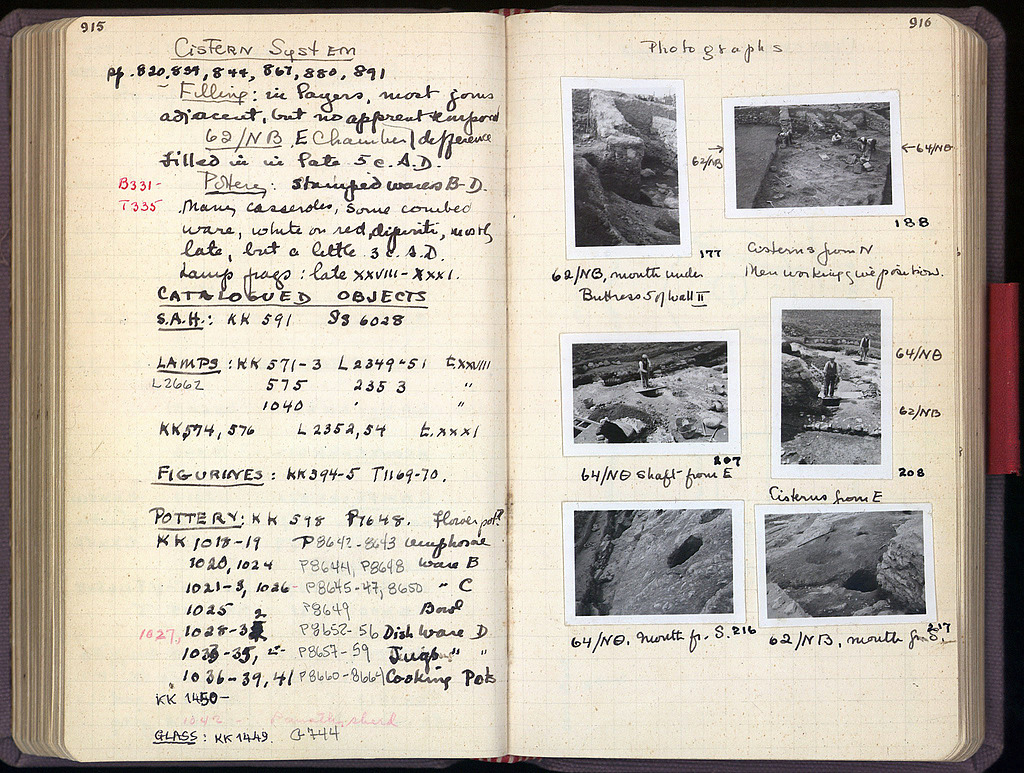 915
Cistern System
pp. 820, 839, 844, 867, 880, 891
Filling: in layers, most joins
adjacent, but no apparent temporal
62/NB. E Chamber / difference
filled in in late 5 c. A.D.
B331- Pottery: stamped wares B-D.
T335 Many casseroles, some combed
ware, white on red, dipinti, mostly
late, but a little 3 c. A.D.
Lamp frags: late XXVIII-XXXI.
CATALOGUED OBJECTS
S.A.H.: KK 591 SS 6028
LAMPS: KK 571-3 L2349-51 t.XXVIII
L2662 575 2353 "
1040 "
KK 574, 576 L2352, 54 t.XXXI
FIGURINES: KK 394-5 T1169-70.
POTTERY: KK 598 P7648. flower pot?
KK 1018-19 P8642-8643 amphorae
1020, 1024 P8644, P8648 Ware B
1021-3, 1026 P8645-47, 8650 " C
1025 P8649 Bowl
1027, 1028-32 P8652-56 Dish Ware D
1033-35, P8657-59 Jugs " "
1036-39, 41 P8660-8664 Cooking Pots
KK 1450-
1042
GLASS: KK 1449. G744
916
Photographs
62/NB
64/NΘ
188
177
Cisterns from N
62/NB, mouth under
Men working give position.
Buttress 5 of Wall II
64/NΘ
62/NB
207
208
64/NΘ shaft from E
Cisterns from E
64/NΘ. Mouth fr. S. 216
62/NB, mouth fr. S. 217